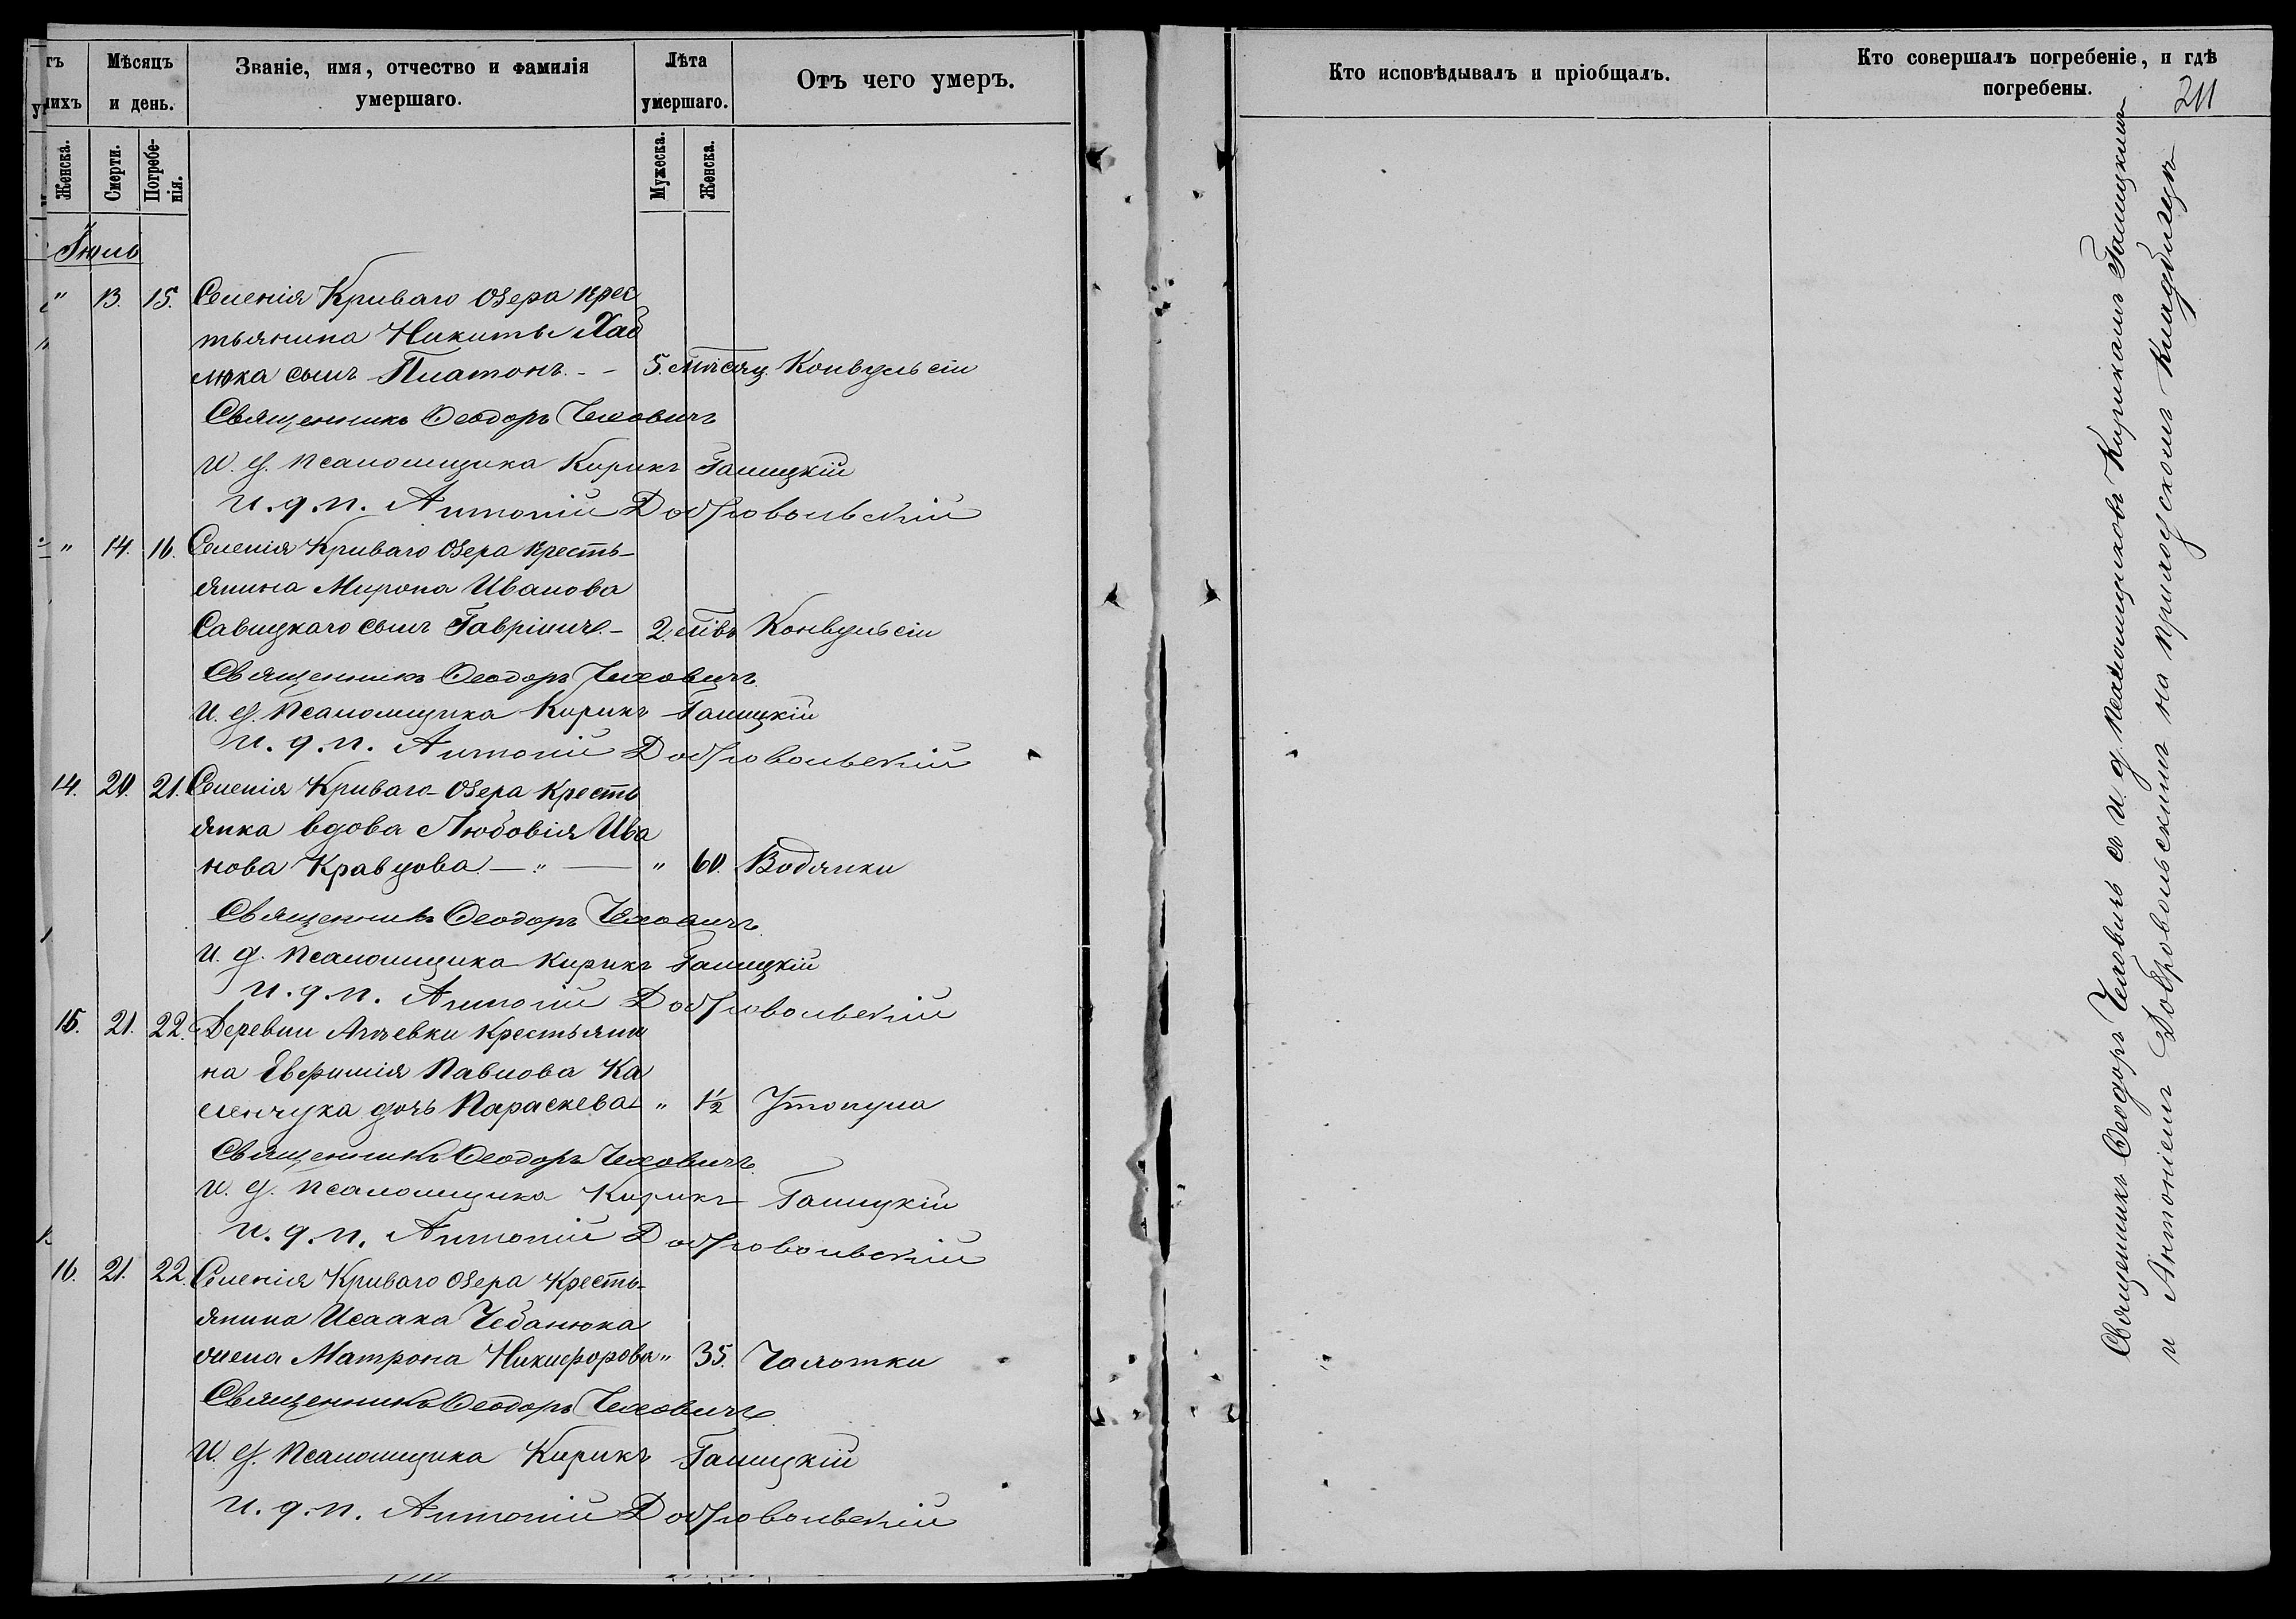 Мѣсяцъ и день.
Званіе, имя, отчество и фамилія умершаго.
Лѣта умершаго.
Отъ чего умеръ.
Женска.
Смерти.
Погребенія.
Мужеска.
Женска.
Іюль
" 13. 15. Селенія Криваго Озера крес
тьянина Никиты
сынъ Платонъ. - - 5. мѣсяц. Конвульсіи
Священникъ Ѳеодоръ Чехович
И. д. псаломщика Кирикъ Галицкій
и. д. п. Антоній Добровольскій
" 14. 16. Селенія Криваго Озера кресть-
янина Мирона Иванова
Савицкаго сынъ Гавріилъ. - 2. лѣтъ Конвульсіи
Священникъ Ѳеодоръ Чеховичъ
И. д. псаломщика Кирикъ Галицкій
и. д. п. Антоній Добровольскій
14. 20. 21. Селенія Криваго Озера кресть
янка вдова Любовія Ива
нова Кравцова — " — " 60. Водянки
Священникъ Ѳеодоръ Чеховичъ
И. д. псаломщика Кирикъ Галицкій
и. д. п. Антоній Добровольскій
15. 21. 22. Деревни крестьяни
на Евфимія Павлова Ка
ленчука дочь Параскева " 1½ Утонула
Священникъ Ѳеодоръ Чеховичъ
И. д. псаломщика Кирикъ Галицкій
и. д. п. Антоній Добровольскій
16. 21. 22. Селенія Криваго Озера кресть-
янина Исаака Чебанюка
жена Матрона Никифорова " 35. Чахотки
Священникъ Ѳеодоръ Чеховичъ
И. д. псаломщика Кирикъ Галицкій
и. д. п. Антоній Добровольскій
Кто исповѣдывалъ и пріобщалъ.
Кто совершалъ погребеніе, и гдѣ погребены.
211
Священникъ Ѳеодоръ Чеховичъ съ и. д. псаломщиковъ Кирикомъ Галицкимъ
и Антоніемъ Добровольскимъ на приходскомъ кладбищѣ